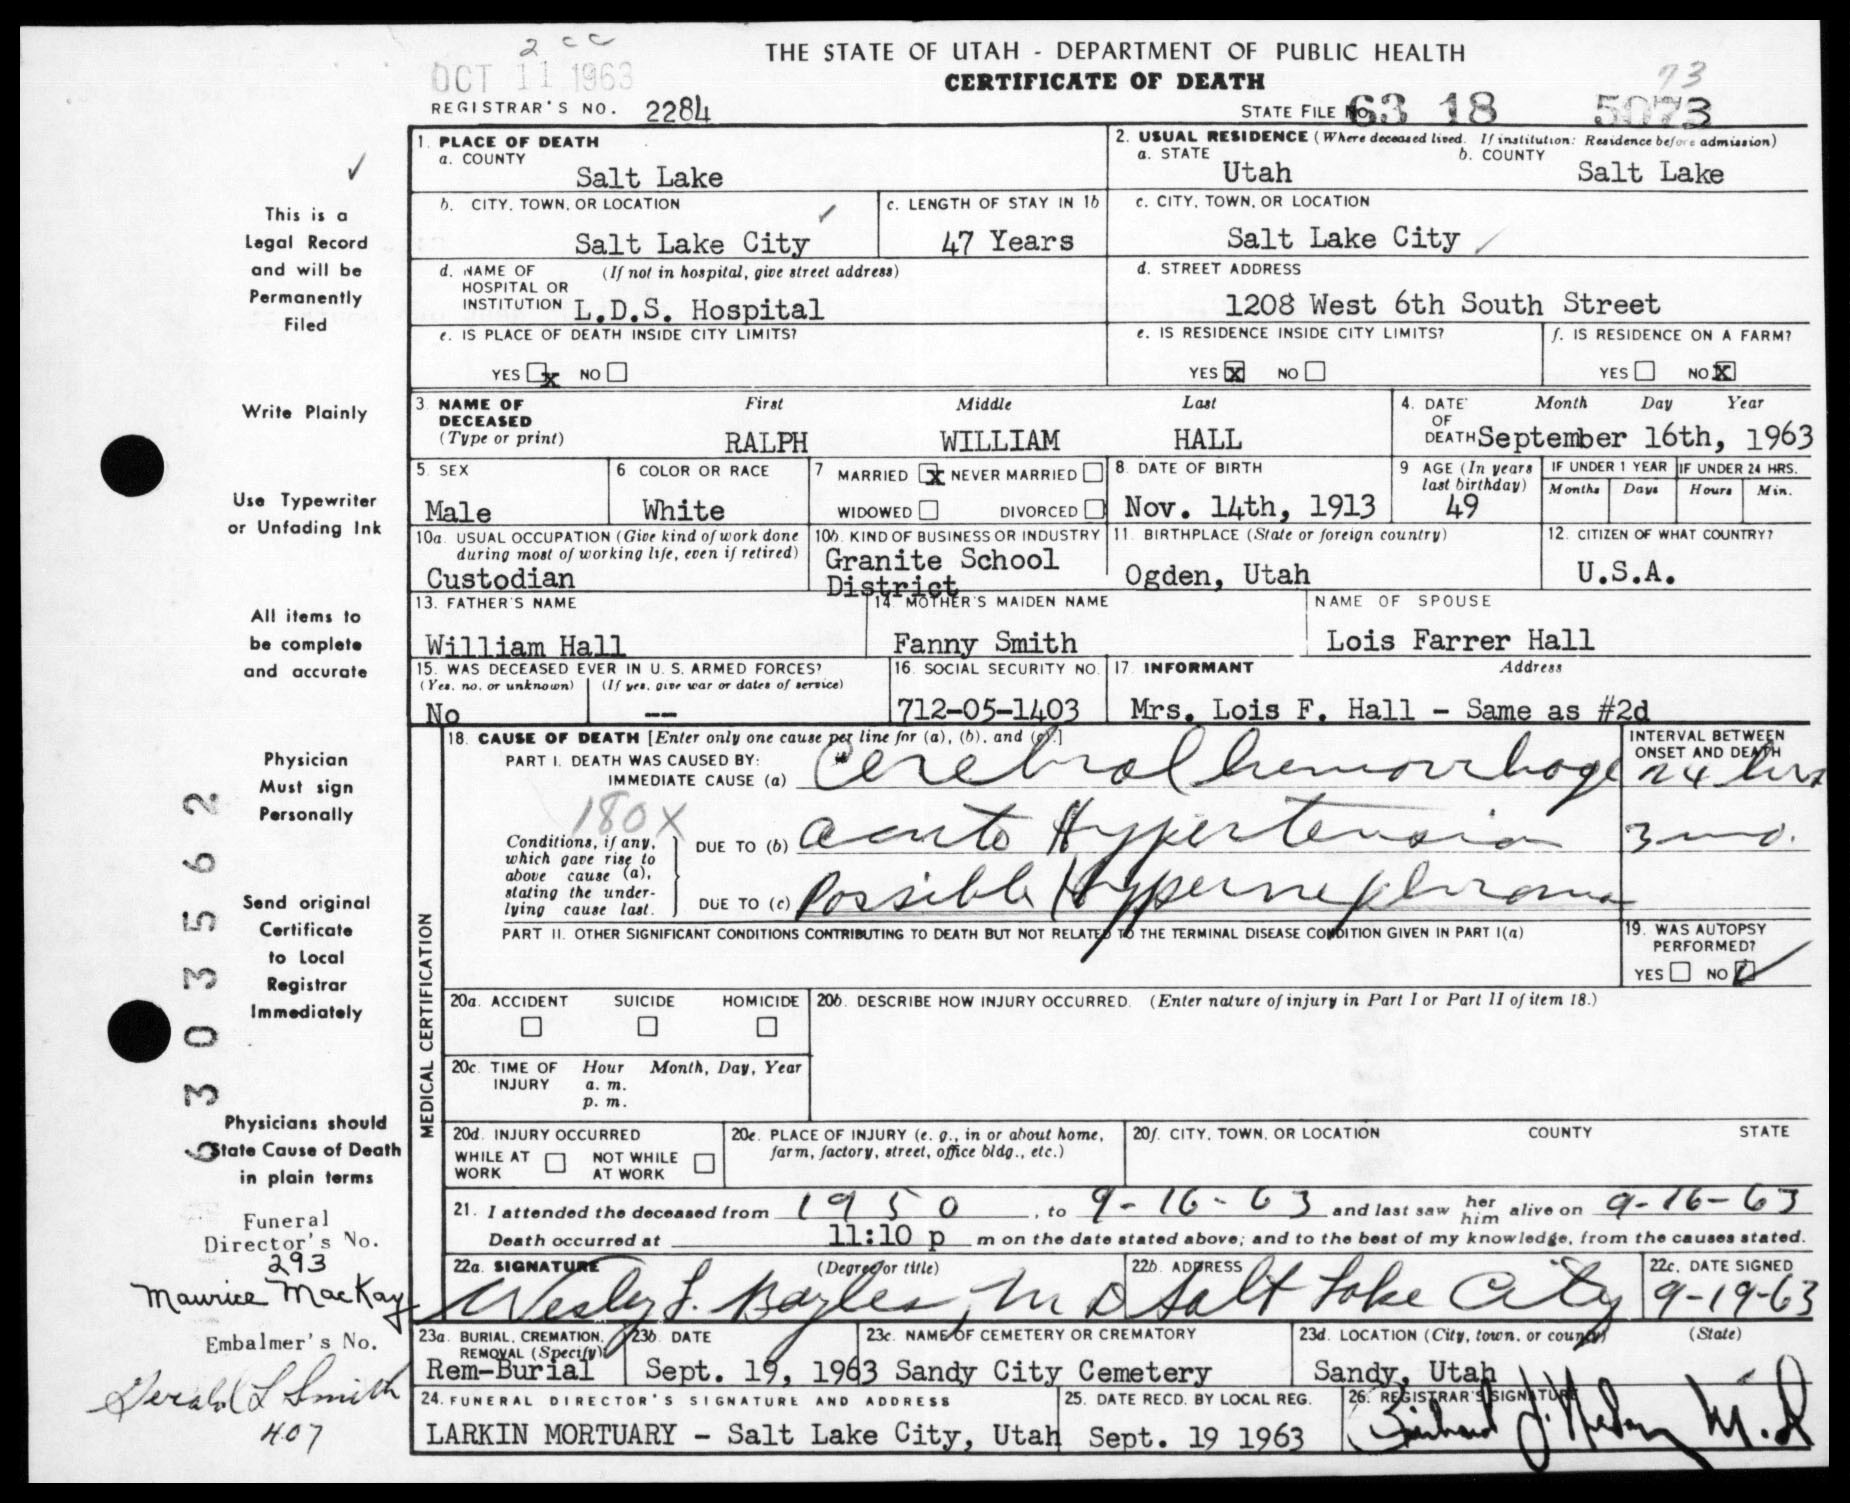 2 cc
OCT 11 1963
THE STATE OF UTAH - DEPARTMENT OF PUBLIC HEALTH
CERTIFICATE OF DEATH
73
REGISTRAR'S NO. 2284
STATE FILE NO. 63 18 5073
This is a
Legal Record
and will be
Permanently
Filed
Write Plainly
Use Typewriter
or Unfading Ink
All items to
be complete
and accurate
Physician
Must sign
Personally
Send original
Certificate
to Local
Registrar
Immediately
Physicians should
State Cause of Death
in plain terms
6303562
Funeral
Director's No.
293
Maurice MacKay
Embalmer's No.
Gerald L Smith
407
1. PLACE OF DEATH
a. COUNTY
Salt Lake
2. USUAL RESIDENCE (Where deceased lived. If institution: Residence before admission)
a. STATE b. COUNTY
Utah Salt Lake
b. CITY, TOWN, OR LOCATION
Salt Lake City
c. LENGTH OF STAY IN 1b
47 Years
c. CITY, TOWN, OR LOCATION
Salt Lake City
d. NAME OF (If not in hospital, give street address)
HOSPITAL OR
INSTITUTION L.D.S. Hospital
d. STREET ADDRESS
1208 West 6th South Street
e. IS PLACE OF DEATH INSIDE CITY LIMITS?
YES x NO
e. IS RESIDENCE INSIDE CITY LIMITS?
YES X NO
f. IS RESIDENCE ON A FARM?
YES NO X
3. NAME OF First Middle Last
DECEASED
(Type or print) RALPH WILLIAM HALL
4. DATE Month Day Year
OF
DEATH September 16th, 1963
5. SEX
Male
6 COLOR OR RACE
White
7 MARRIED x NEVER MARRIED
WIDOWED DIVORCED
8. DATE OF BIRTH
Nov. 14th, 1913
9 AGE (In years
last birthday)
49
IF UNDER 1 YEAR IF UNDER 24 HRS.
Months Days Hours Min.
10a. USUAL OCCUPATION (Give kind of work done
during most of working life, even if retired)
Custodian
10b. KIND OF BUSINESS OR INDUSTRY
Granite School
District
11. BIRTHPLACE (State or foreign country)
Ogden, Utah
12. CITIZEN OF WHAT COUNTRY?
U.S.A.
13. FATHER'S NAME
William Hall
14. MOTHER'S MAIDEN NAME
Fanny Smith
NAME OF SPOUSE
Lois Farrer Hall
15. WAS DECEASED EVER IN U. S. ARMED FORCES?
(Yes, no, or unknown) (If yes, give war or dates of service)
No --
16. SOCIAL SECURITY NO.
712-05-1403
17. INFORMANT Address
Mrs. Lois F. Hall - Same as #2d
MEDICAL CERTIFICATION
18. CAUSE OF DEATH [Enter only one cause per line for (a), (b), and (c).]
INTERVAL BETWEEN
ONSET AND DEATH
PART I. DEATH WAS CAUSED BY:
IMMEDIATE CAUSE (a) Cerebral hemorrhage 24 hrs
180X
Conditions, if any,
which gave rise to
above cause (a),
stating the under-
lying cause last.
DUE TO (b) acute Hypertension 3 mo.
DUE TO (c) Possible Hypernephroma
PART II. OTHER SIGNIFICANT CONDITIONS CONTRIBUTING TO DEATH BUT NOT RELATED TO THE TERMINAL DISEASE CONDITION GIVEN IN PART I(a)
19. WAS AUTOPSY
PERFORMED?
YES NO ✓
20a. ACCIDENT SUICIDE HOMICIDE
20b. DESCRIBE HOW INJURY OCCURRED. (Enter nature of injury in Part I or Part II of item 18.)
20c. TIME OF Hour Month, Day, Year
INJURY a. m.
p. m.
20d. INJURY OCCURRED
WHILE AT NOT WHILE
WORK AT WORK
20e. PLACE OF INJURY (e. g., in or about home,
farm, factory, street, office bldg., etc.)
20f. CITY, TOWN, OR LOCATION COUNTY STATE
21. I attended the deceased from 1950, to 9-16-63 and last saw her him alive on 9-16-63
Death occurred at 11:10 p m on the date stated above; and to the best of my knowledge, from the causes stated.
22a. SIGNATURE (Degree or title)
Wesley F. Bayles, M D
22b. ADDRESS
Salt Lake City
22c. DATE SIGNED
9-19-63
23a. BURIAL, CREMATION,
REMOVAL (Specify)
Rem-Burial
23b. DATE
Sept. 19, 1963
23c. NAME OF CEMETERY OR CREMATORY
Sandy City Cemetery
23d. LOCATION (City, town, or county) (State)
Sandy, Utah
24. FUNERAL DIRECTOR'S SIGNATURE AND ADDRESS
LARKIN MORTUARY - Salt Lake City, Utah
25. DATE RECD. BY LOCAL REG.
Sept. 19 1963
26. REGISTRAR'S SIGNATURE
M.D